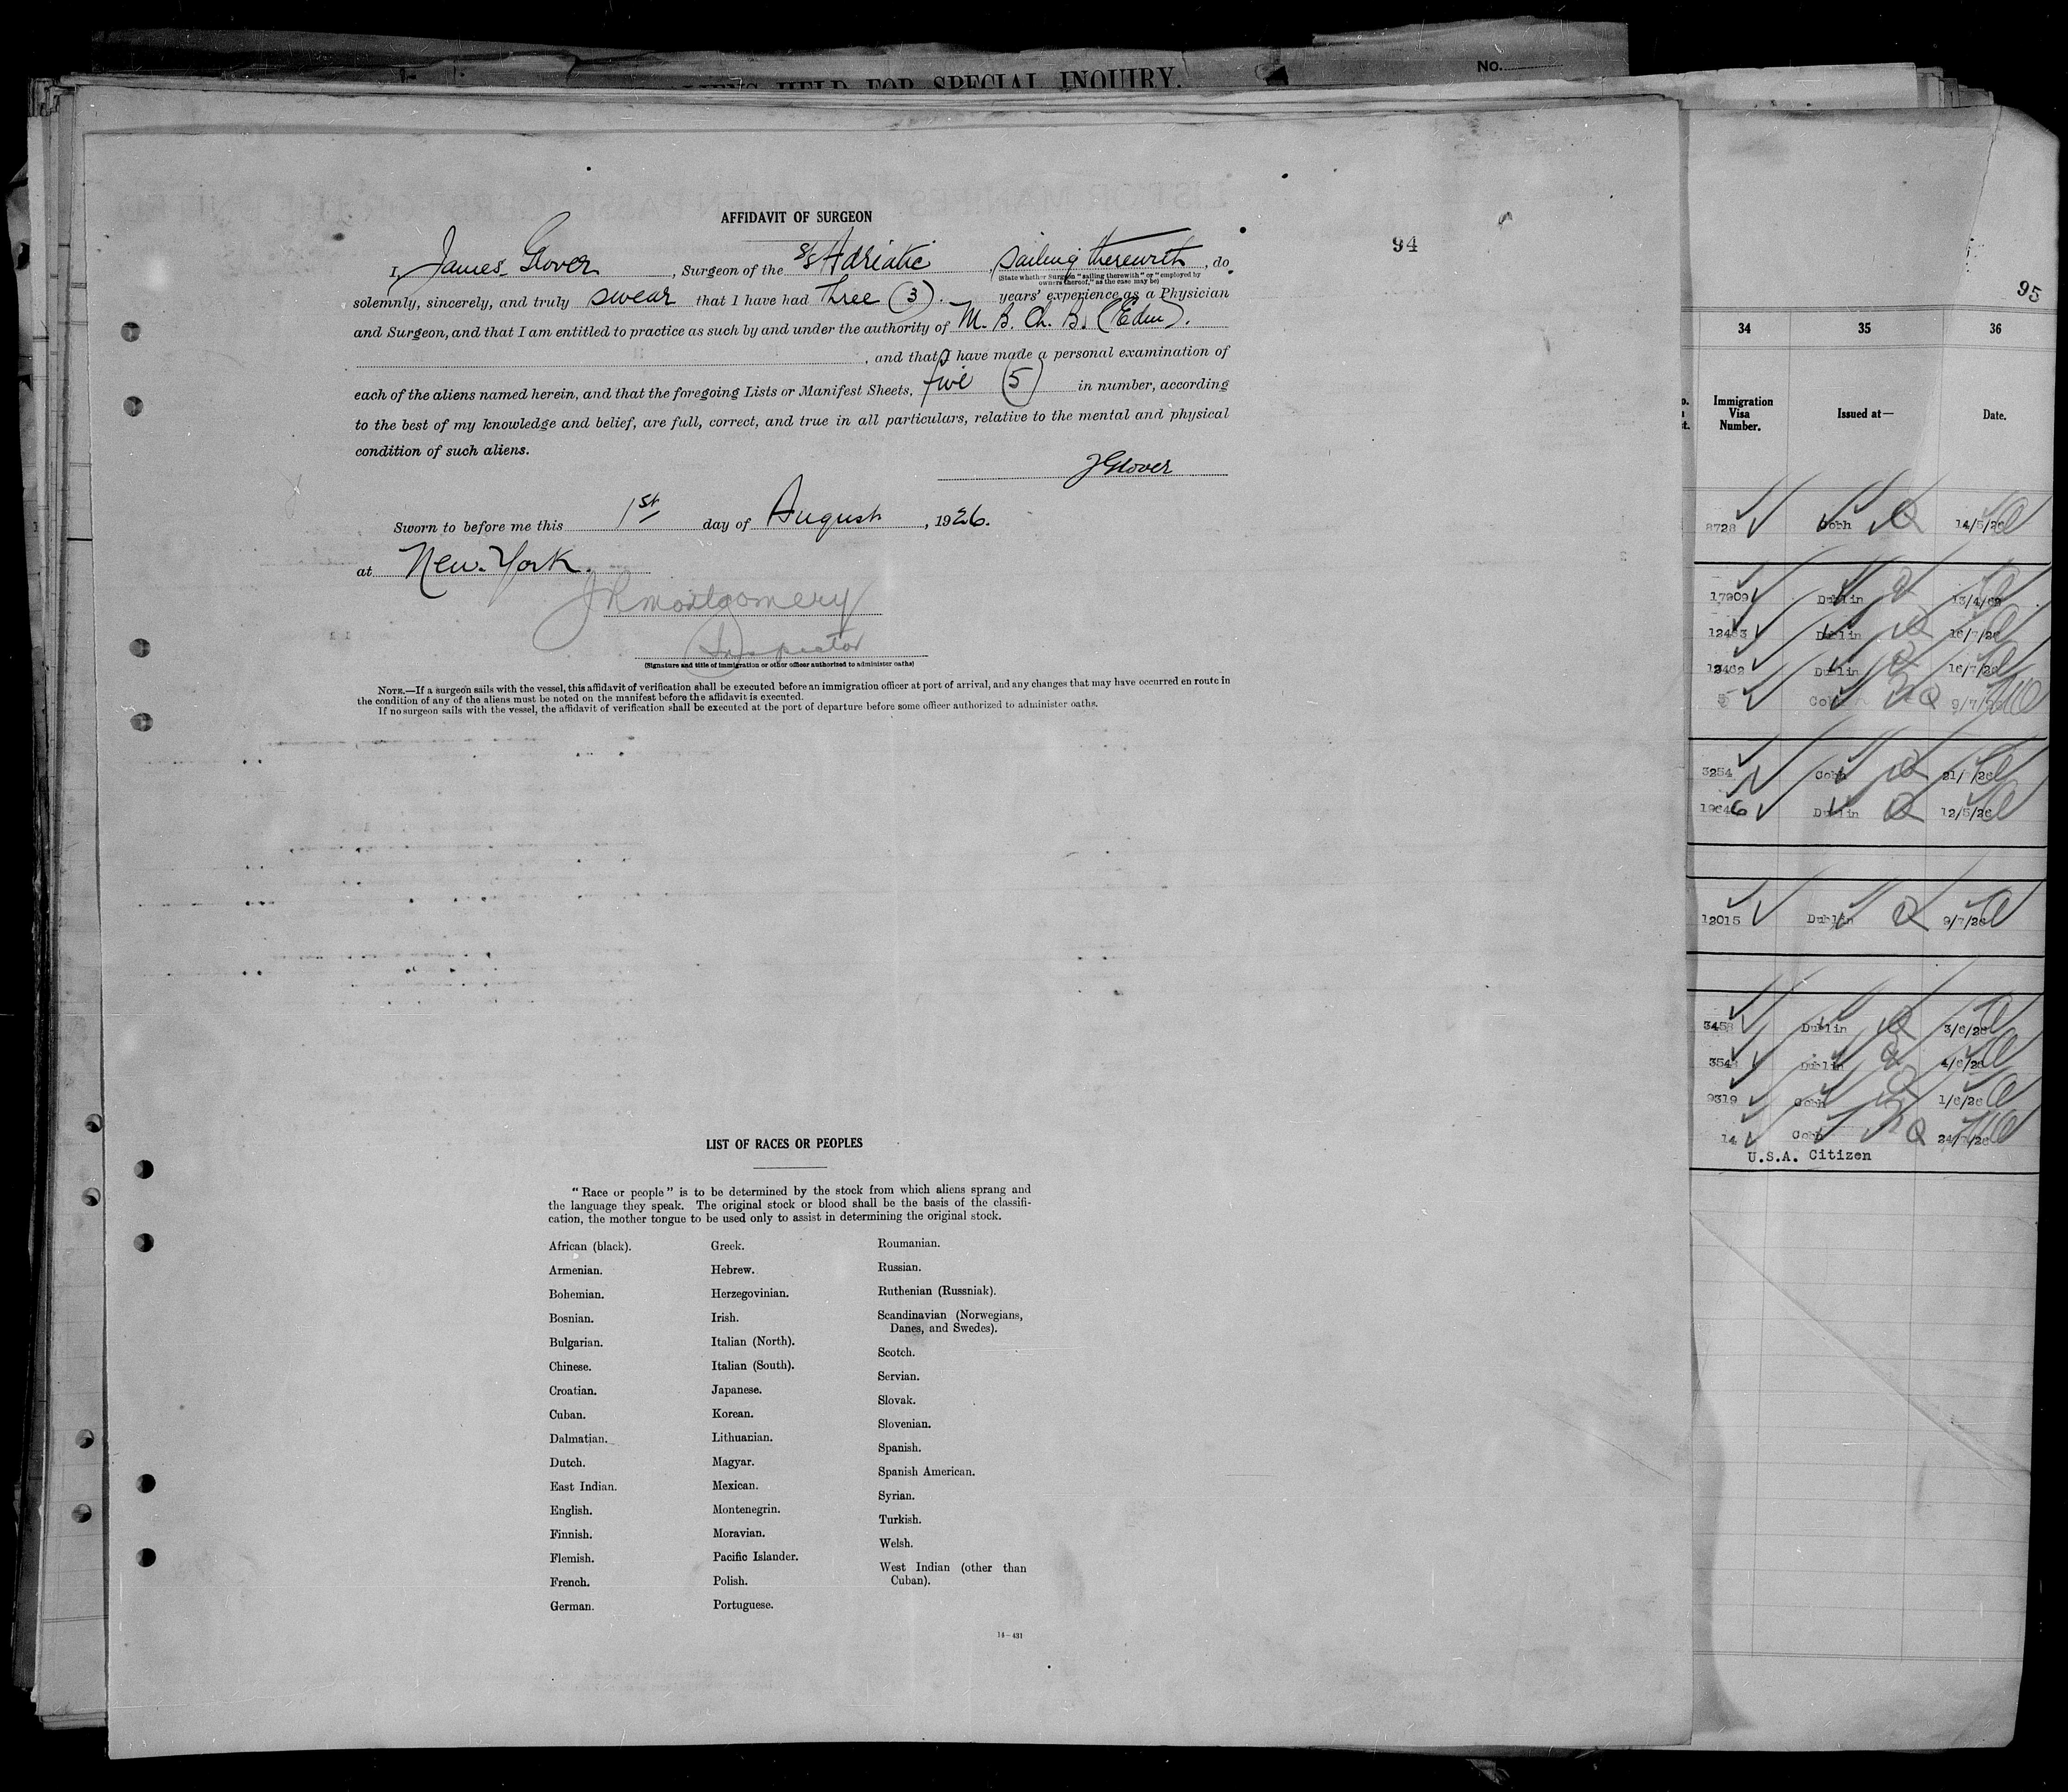 ALIENS HELD FOR SPECIAL INQUIRY.
No.
AFFIDAVIT OF SURGEON
94
I, James Glover, Surgeon of the S/S Adriatic, sailing therewith, do
(State whether Surgeon "sailing therewith" or "employed by
owners thereof," as the case may be)
solemnly, sincerely, and truly swear that I have had three (3). years' experience as a Physician
and Surgeon, and that I am entitled to practice as such by and under the authority of M. B. Ch. B. (Edin).
, and that I have made a personal examination of
each of the aliens named herein, and that the foregoing Lists or Manifest Sheets, five (5) in number, according
to the best of my knowledge and belief, are full, correct, and true in all particulars, relative to the mental and physical
condition of such aliens.
JGlover
Sworn to before me this 1st day of August, 1926.
at New York.
JR Montgomery
Inspector
(Signature and title of immigration or other officer authorized to administer oaths)
NOTE.—If a surgeon sails with the vessel, this affidavit of verification shall be executed before an immigration officer at port of arrival, and any changes that may have occurred en route in
the condition of any of the aliens must be noted on the manifest before the affidavit is executed.
If no surgeon sails with the vessel, the affidavit of verification shall be executed at the port of departure before some officer authorized to administer oaths.
LIST OF RACES OR PEOPLES
"Race or people" is to be determined by the stock from which aliens sprang and
the language they speak. The original stock or blood shall be the basis of the classifi-
cation, the mother tongue to be used only to assist in determining the original stock.
African (black).
Armenian.
Bohemian.
Bosnian.
Bulgarian.
Chinese.
Croatian.
Cuban.
Dalmatian.
Dutch.
East Indian.
English.
Finnish.
Flemish.
French.
German.
Greek.
Hebrew.
Herzegovinian.
Irish.
Italian (North).
Italian (South).
Japanese.
Korean.
Lithuanian.
Magyar.
Mexican.
Montenegrin.
Moravian.
Pacific Islander.
Polish.
Portuguese.
Roumanian.
Russian.
Ruthenian (Russniak).
Scandinavian (Norwegians,
Danes, and Swedes).
Scotch.
Servian.
Slovak.
Slovenian.
Spanish.
Spanish American.
Syrian.
Turkish.
Welsh.
West Indian (other than
Cuban).
14—431
95
34 35 36
Immigration
Visa
Number.
Issued at—
Date.
8728 Cobh 14/5/26
17909 Dublin
12463 Dublin 16/7/26
12462 Dublin 16/7/26
Cobh 9/7/26
3254 Cobh
Dublin 12/5/26
12015 Dublin 9/7/26
3458 Dublin 3/6/26
Dublin 4/6/26
9319 Cobh 1/6/26
14 Cobh
U.S.A. Citizen